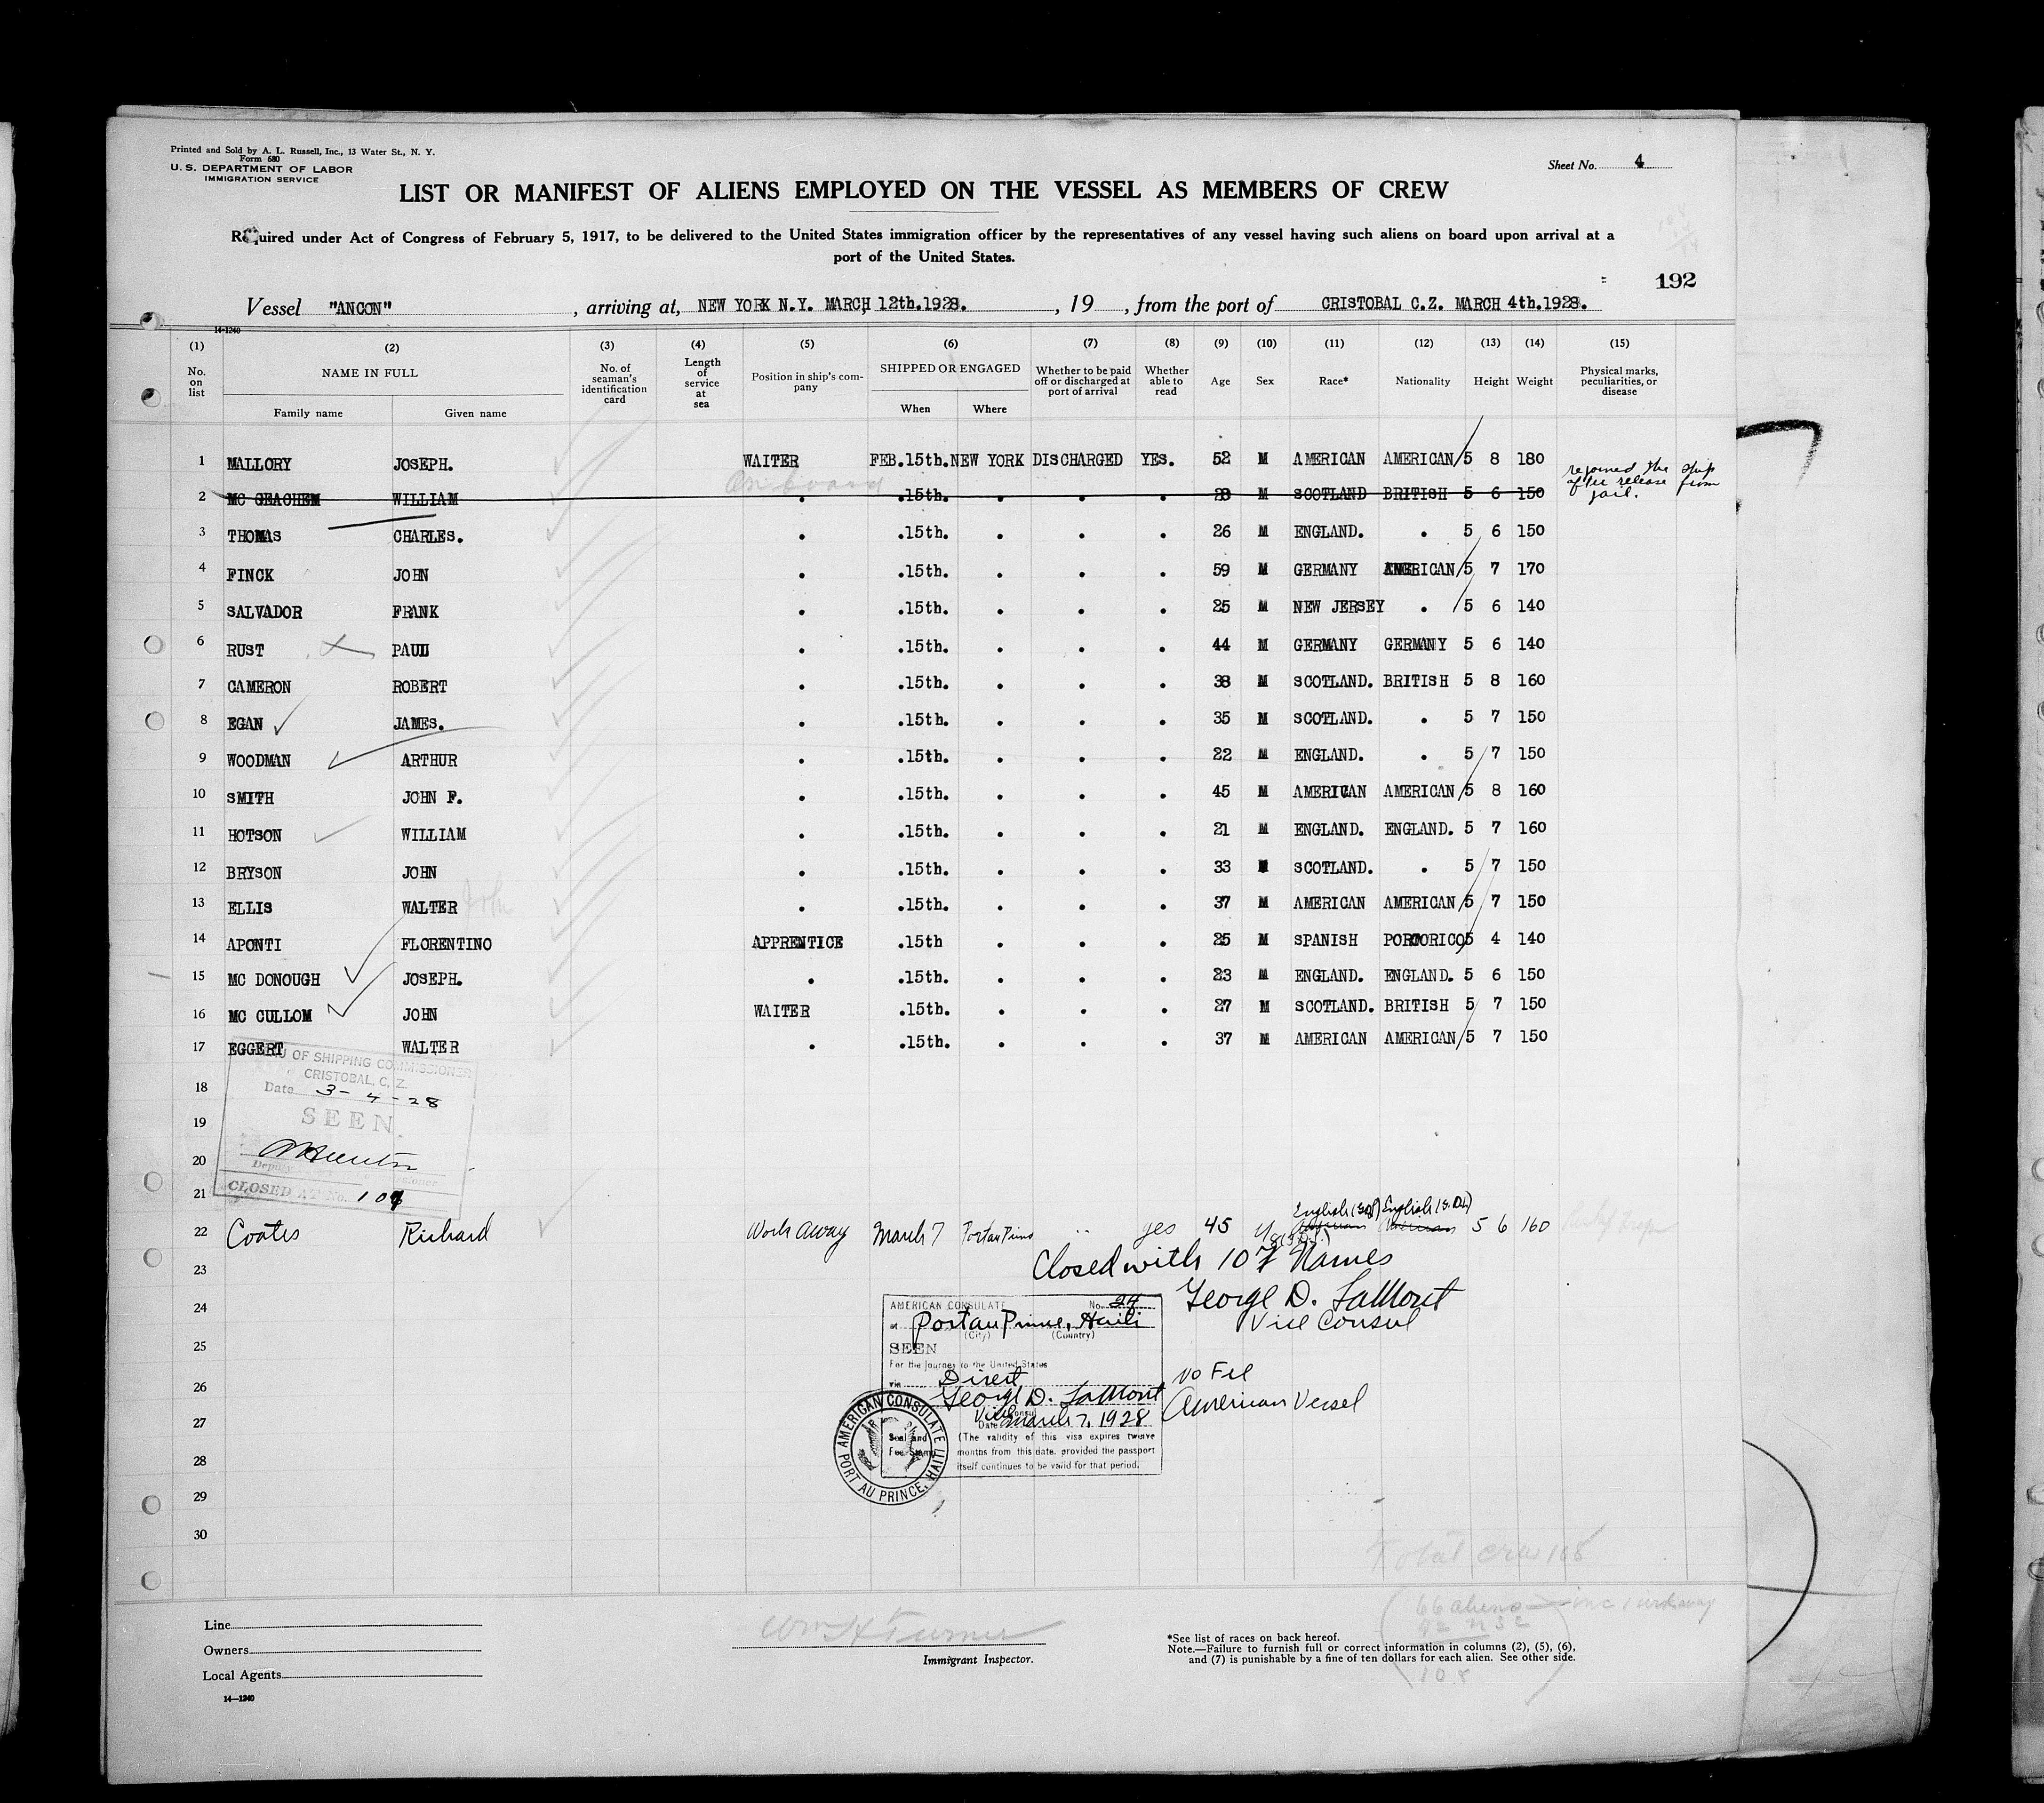 Printed and Sold by A. L. Russell, Inc., 13 Water St., N. Y.
Form 680
U. S. DEPARTMENT OF LABOR
IMMIGRATION SERVICE
Sheet No. 4
LIST OR MANIFEST OF ALIENS EMPLOYED ON THE VESSEL AS MEMBERS OF CREW
Required under Act of Congress of February 5, 1917, to be delivered to the United States immigration officer by the representatives of any vessel having such aliens on board upon arrival at a
port of the United States.
192
Vessel "ANCON", arriving at, NEW YORK N.Y. MARCH 12th.1928., 19, from the port of CRISTOBAL C.Z. MARCH 4th.1928.
14-1240
(1) (2) (3) (4) (5) (6) (7) (8) (9) (10) (11) (12) (13) (14) (15)
No. on list NAME IN FULL Family name Given name No. of seaman's identification card Length of service at sea Position in ship's company SHIPPED OR ENGAGED When Where Whether to be paid off or discharged at port of arrival Whether able to read Age Sex Race* Nationality Height Weight Physical marks, peculiarities, or disease
1 MALLORY JOSEPH. WAITER FEB.15th. NEW YORK DISCHARGED YES. 52 M AMERICAN AMERICAN 5 8 180
On board
2 MC GEACHEM WILLIAM . .15th. . . . 28 M SCOTLAND BRITISH 5 6 150 rejoined the ship after release from jail.
3 THOMAS CHARLES. . .15th. . . . 26 M ENGLAND. . 5 6 150
4 FINCK JOHN . .15th. . . . 59 M GERMANY AMERICAN 5 7 170
5 SALVADOR FRANK . .15th. . . . 25 M NEW JERSEY . 5 6 140
6 RUST PAUL . .15th. . . . 44 M GERMANY GERMANY 5 6 140
7 CAMERON ROBERT . .15th. . . . 38 M SCOTLAND. BRITISH 5 8 160
8 EGAN JAMES. . .15th. . . . 35 M SCOTLAND. . 5 7 150
9 WOODMAN ARTHUR . .15th. . . . 22 M ENGLAND. . 5 7 150
10 SMITH JOHN F. . .15th. . . . 45 M AMERICAN AMERICAN 5 8 160
11 HOTSON WILLIAM . .15th. . . . 21 M ENGLAND. ENGLAND. 5 7 160
12 BRYSON JOHN . .15th. . . . 33 M SCOTLAND. . 5 7 150
13 ELLIS WALTER John . .15th. . . . 37 M AMERICAN AMERICAN 5 7 150
14 APONTI FLORENTINO APPRENTICE .15th . . . 25 M SPANISH PORTORICO 5 4 140
15 MC DONOUGH JOSEPH. . .15th. . . . 23 M ENGLAND. ENGLAND. 5 6 150
16 MC CULLOM JOHN WAITER .15th. . . . 27 M SCOTLAND. BRITISH 5 7 150
17 EGGERT WALTER . .15th. . . . 37 M AMERICAN AMERICAN 5 7 150
OF SHIPPING COMMISSIONER
CRISTOBAL, C. Z.
18
Date 3-4-28
19
SEEN
20
Deputy
21
CLOSED AT No. 107
English English
22 Coates Richard Work away March 7 Port au Prince yes 45 American American 5 6 160
23
Closed with 107 Names
24
George D. LaMont
Vice Consul
AMERICAN CONSULATE No. 24
at Port au Prince, Haiti
(City) (Country)
25
SEEN
For the journey to the United States
26
via Direct
No Fee
George D. LaMont
American Vessel
27
Vice Consul
Date March 7, 1928
Seal and Fee Stamp
(The validity of this visa expires twelve
months from this date, provided the passport
itself continues to be valid for that period.
28
AMERICAN CONSULATE
PORT AU PRINCE, HAITI
29
30
Total crew 108
66 aliens inc 1 workaway
42 USC
108
Line
Owners
Local Agents
14—1240
Wm H Turner
Immigrant Inspector.
*See list of races on back hereof.
Note.—Failure to furnish full or correct information in columns (2), (5), (6),
and (7) is punishable by a fine of ten dollars for each alien. See other side.